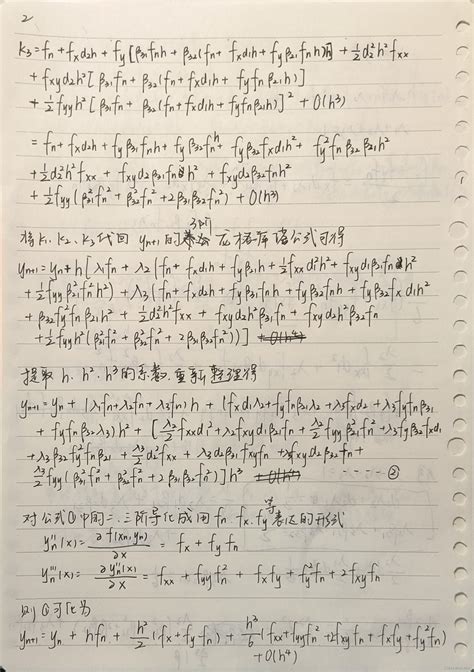 2
K₃ = fn + fxd₂h + fy[β₃₁fnh + β₃₂(fn + fxd₁h + fyβ₂₁fnh)h] + ½d₂²h²fxx
+ fxyd₂h²[β₃₁fn + β₃₂(fn + fxd₁h + fyfnβ₂₁h)]
+ ½fyyh²[β₃₁fn + β₃₂(fn + fxd₁h + fyfnβ₂₁h)]² + O(h³)
= fn + fxd₂h + fyβ₃₁fnh + fyβ₃₂fnh + fyβ₃₂fxd₁h² + fy²fnβ₃₂β₂₁h²
+ ½d₂²h²fxx + fxyd₂β₃₁fnh² + fxyd₂β₃₂fnh²
+ ½fyy(β₃₁²fn² + β₃₂²fn² + 2β₃₁β₃₂fn²) + O(h³)
将K₁、K₂、K₃代回yn+1的三阶龙格库塔公式可得
yn+1 = yn + h[λ₁fn + λ₂(fn + fxd₁h + fyfnβ₂₁h + ½fxxd₁²h² + fxyd₁β₂₁fnh²
+ ½fyyβ₂₁²fn²h²) + λ₃(fn + fxd₂h + fyβ₃₁fnh + fyβ₃₂fnh + fyβ₃₂fxd₁h²
+ β₃₂fy²fnβ₂₁h² + ½d₂²h²fxx + fxyd₂h²β₃₁fn + fxyd₂h²β₃₂fn
+ ½fyyh²(β₃₁²fn² + β₃₂²fn² + 2β₃₁β₃₂fn²))]
提取h、h²、h³的系数,重新整理得
yn+1 = yn + (λ₁fn + λ₂fn + λ₃fn)h + (fxd₁λ₂ + fyfnβ₂₁λ₂ + λ₃fxd₂ + λ₃fyfnβ₃₁
+ fyfnβ₃₂λ₃)h² + [λ₂/2 fxxd₁² + λ₂fxyd₁β₂₁fn + λ₂/2 fyyβ₂₁²fn² + λ₃fyβ₃₂fxd₁
+ λ₃β₃₂fy²fnβ₂₁ + λ₃/2 d₂²fxx + λ₃d₂β₃₁fxyfn + λ₃fxyd₂β₃₂fn +
λ₃/2 fyy(β₃₁²fn² + β₃₂²fn² + 2β₃₁β₃₂fn²)]h³ ······②
对公式①中的二、三阶导化成用fn、fx、fy等表达的形式
yn''(x) = ∂f(xn,yn)/∂x = fx + fyfn
yn'''(x) = ∂yn''(x)/∂x = fxx + fyyfn² + fxfy + fy²fn + 2fxyfn
则①可化为
yn+1 = yn + hfn + h²/2(fx + fyfn) + h³/6(fxx + fyyfn² + 2fxyfn + fxfy + fy²fn)
+ O(h⁴)